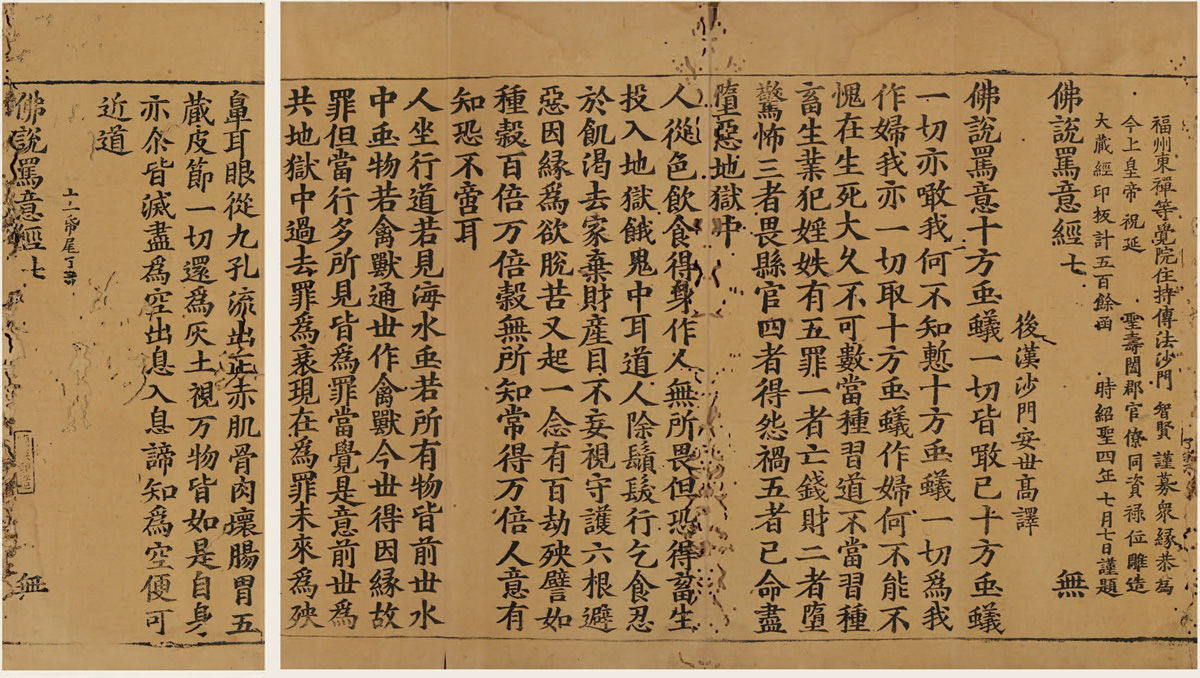 福州東禪等覺院住持傳法沙門 智賢 謹募衆緣恭爲
今上皇帝 祝延 聖壽闔郡官僚同資祿位雕造
大藏經印板計五百餘函 時紹聖四年七月七日謹題
佛說罵意經 七 無
後漢沙門安世高譯
佛說罵意十方䖝蟻一切皆噉已十方䖝蟻
一切亦噉我何不知慙十方䖝蟻一切爲我
作婦我亦一切取十方䖝蟻作婦何不能不
愧在生死大久不可數當種習道不當習種
畜生業犯婬妷有五罪一者亡錢財二者墮
驚怖三者畏縣官四者得怨禍五者已命盡
墮惡地獄中
人從色飲食得身作人無所畏但恐得畜生
投入地獄餓鬼中耳道人除鬚髮行乞食忍
於飢渴去家棄財産目不妄視守護六根避
惡因緣爲欲脫苦又起一念有百劫殃譬如
種穀百倍万倍穀無所知常得万倍人意有
知恐不啻耳
人坐行道若見海水䖝若所有物皆前世水
中䖝物若禽獸通世作禽獸今世得因緣故
罪但當行多所見皆爲罪當覺是意前世爲
共地獄中過去罪爲衰現在爲罪未來爲殃
鼻耳眼從九孔流出正赤肌骨肉壞腸胃五
藏皮節一切還爲灰土視万物皆如是自身
亦尒皆滅盡爲空出息入息諦知爲空便可
近道
佛說罵意經 七 無